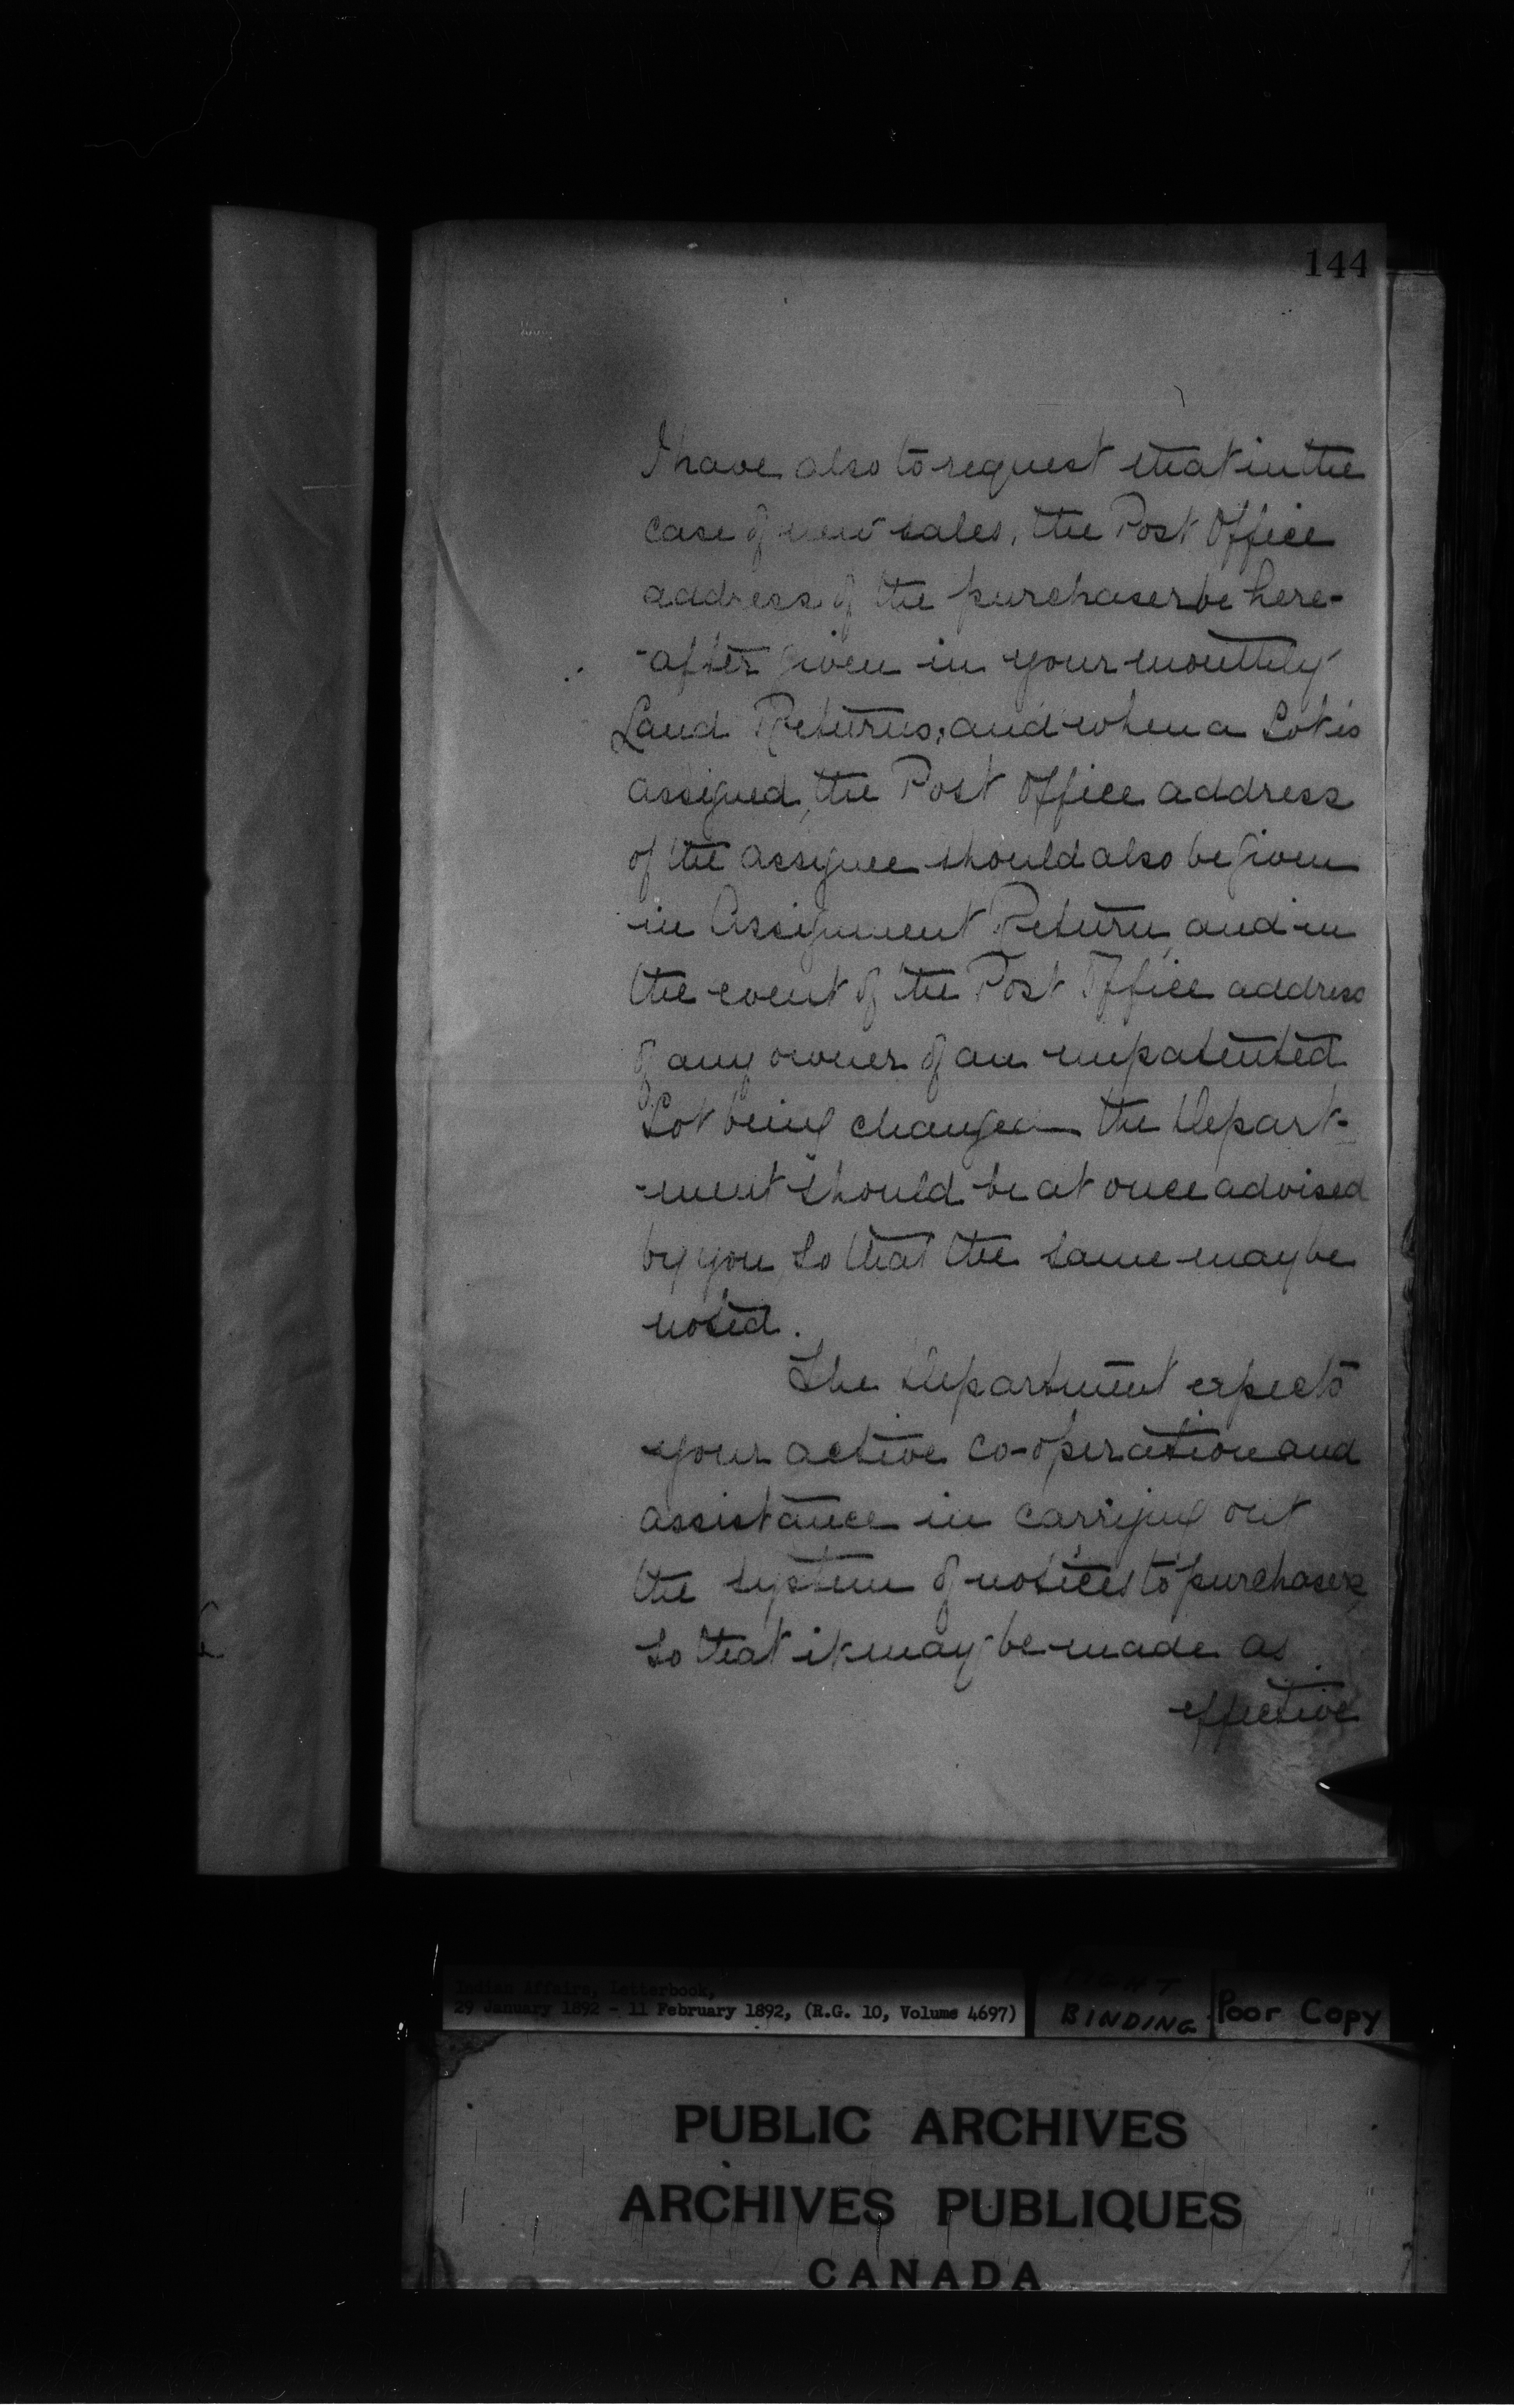 144
I have also to request that in the
case of new sales, the Post Office
address of the purchaser be here-
-after given in your monthly
Land Returns, and when a Lot is
assigned, the Post Office address
of the assignee should also be given
in Assignment Return, and in
the event of the Post Office address
of any owner of an unpatented
Lot being changed the Depart-
-ment should be at once advised
by you, so that the same may be
noted.
The Department expects
your active co-operation and
assistance in carrying out
the system of notices to purchasers,
so that it may be made as
effective
Indian Affairs, Letterbook,
29 January 1892 - 11 February 1892, (R.G. 10, Volume 4697)
BINDING
Poor Copy
PUBLIC ARCHIVES
ARCHIVES PUBLIQUES
CANADA